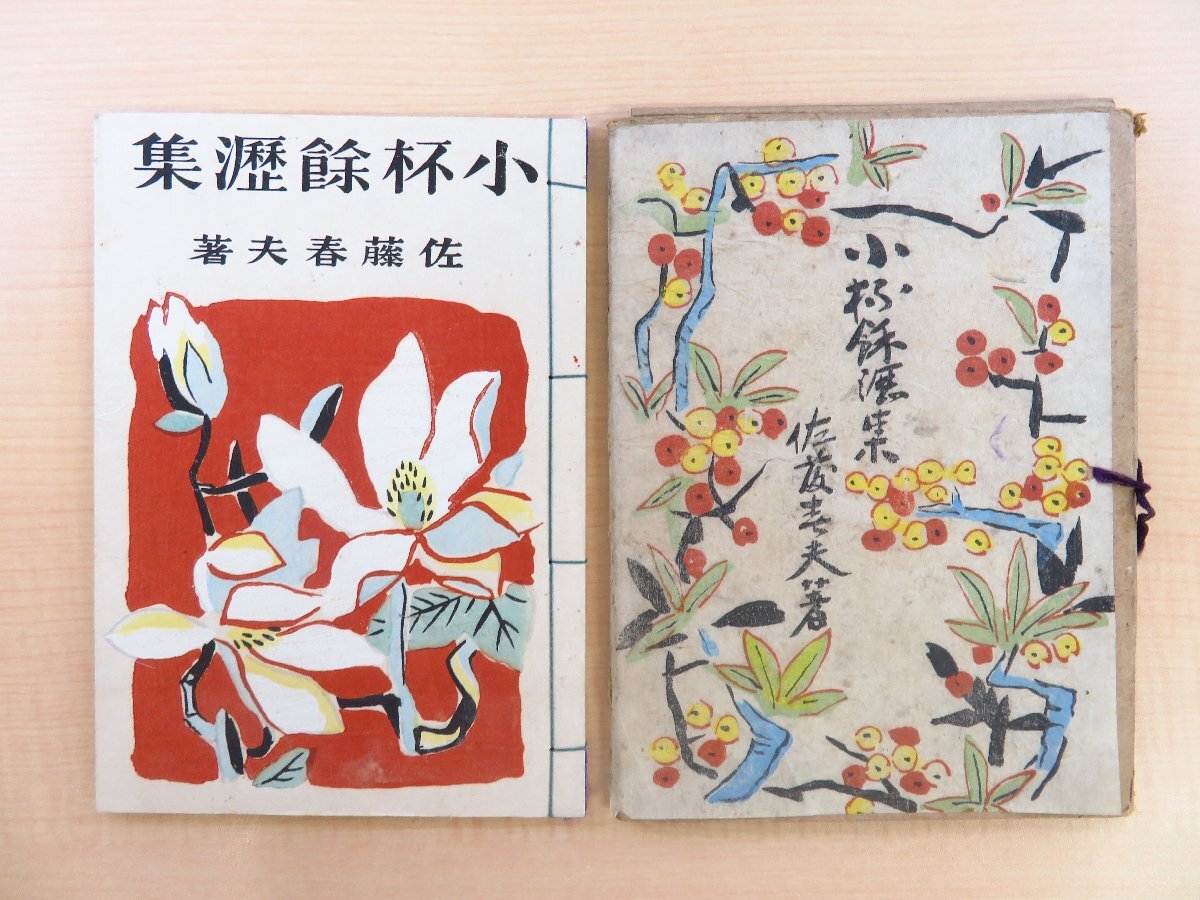 小杯餘瀝集
佐藤春夫著
小杯餘瀝集
佐藤春夫著